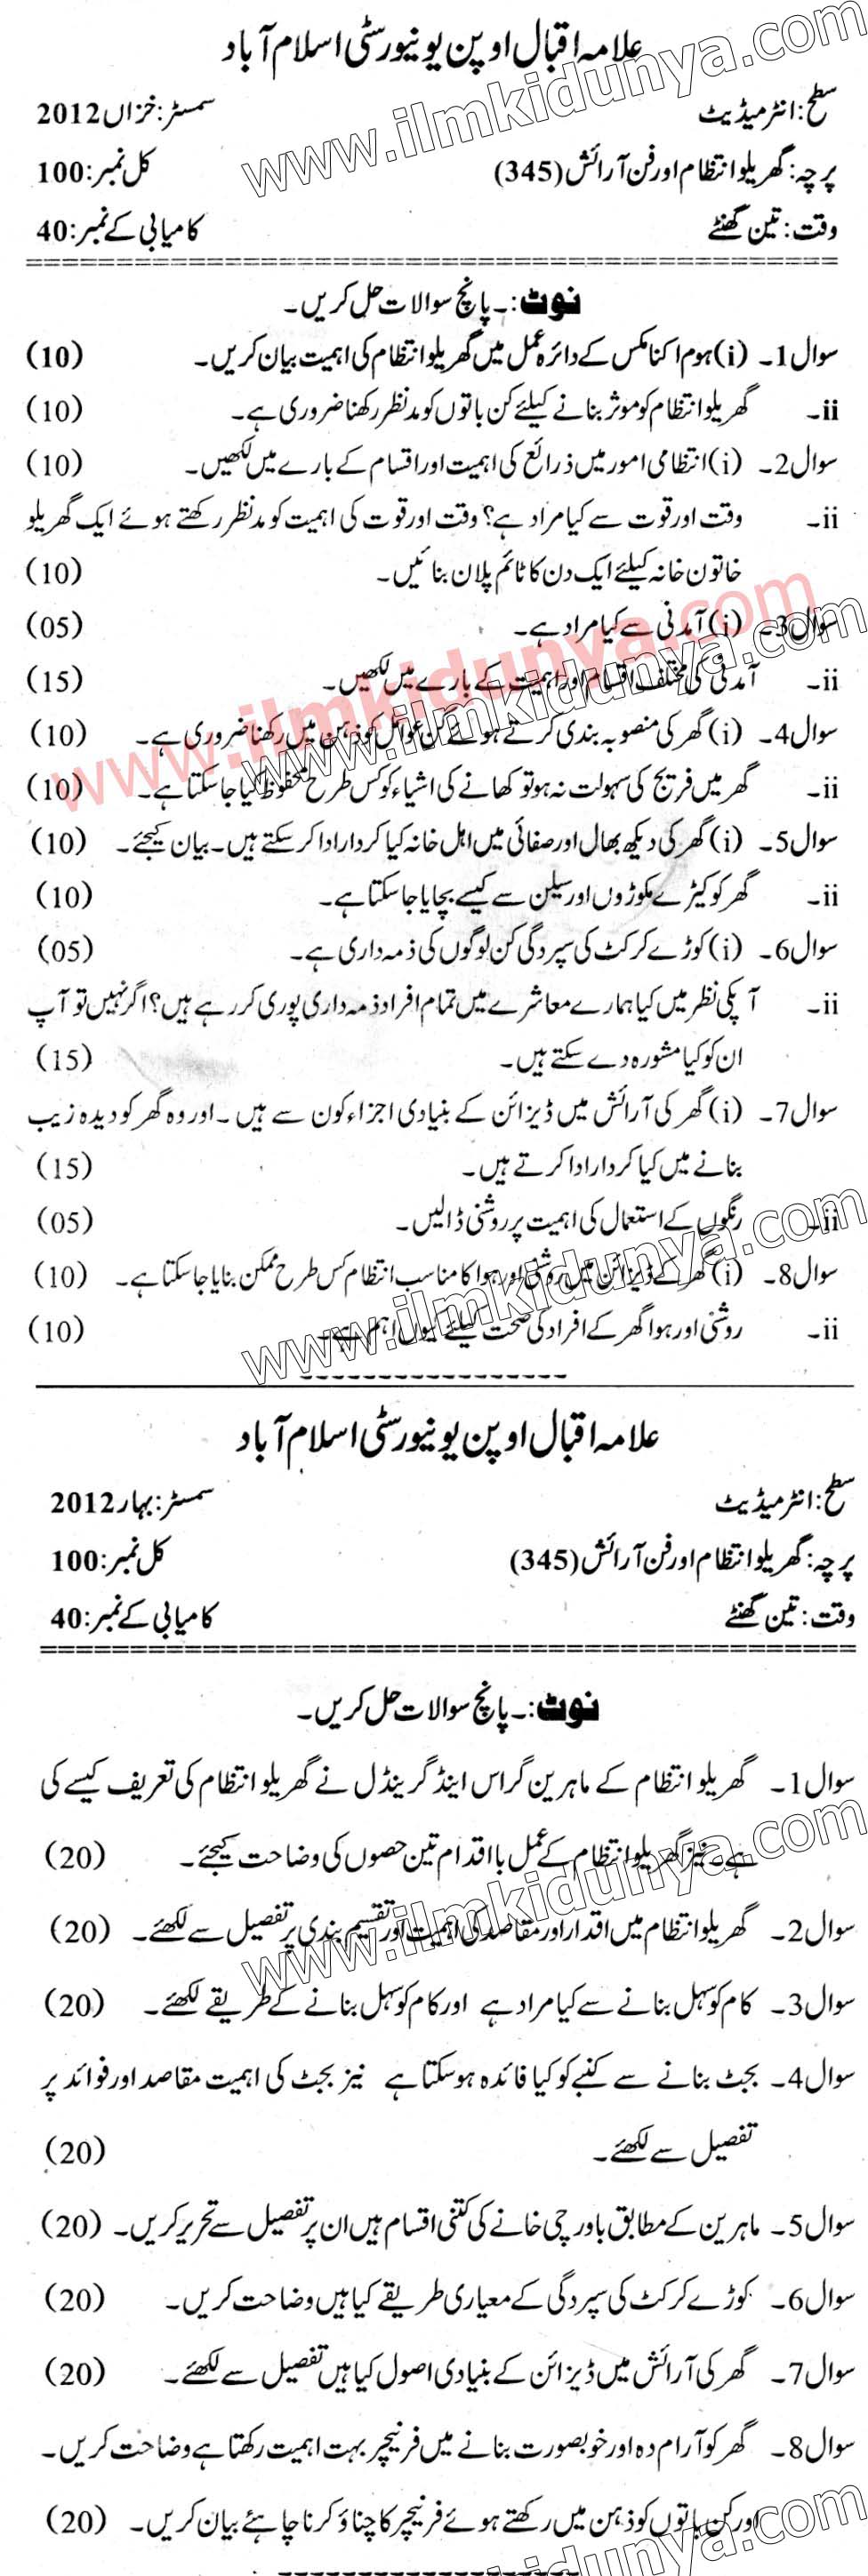 علامہ اقبال اوپن یونیورسٹی اسلام آباد
سطح: انٹرمیڈیٹ سمسٹر: خزاں 2012
پرچہ: گھریلو انتظام اور فن آرائش (345) کل نمبر: 100
وقت: تین گھنٹے کامیابی کے نمبر: 40
نوٹ:۔ پانچ سوالات حل کریں۔
سوال 1۔ (i) ہوم اکنامکس کے دائرہ عمل میں گھریلو انتظام کی اہمیت بیان کریں۔ (10)
ii۔ گھریلو انتظام کو موثر بنانے کیلئے کن باتوں کو مدنظر رکھنا ضروری ہے۔ (10)
سوال 2۔ (i) انتظامی امور میں ذرائع کی اہمیت اور اقسام کے بارے میں لکھیں۔ (10)
ii۔ وقت اور قوت سے کیا مراد ہے؟ وقت اور قوت کی اہمیت کو مدنظر رکھتے ہوئے ایک گھریلو
خاتون خانہ کیلئے ایک دن کا ٹائم پلان بنائیں۔ (10)
سوال 3۔ (i) آمدنی سے کیا مراد ہے۔ (05)
ii۔ آمدنی کی مختلف اقسام اور اہمیت کے بارے میں لکھیں۔ (15)
سوال 4۔ (i) گھر کی منصوبہ بندی کرتے ہوئے کن عوامل کو ذہن میں رکھنا ضروری ہے۔ (10)
ii۔ گھر میں فریج کی سہولت نہ ہو تو کھانے کی اشیاء کو کس طرح محفوظ کیا جا سکتا ہے۔ (10)
سوال 5۔ (i) گھر کی دیکھ بھال اور صفائی میں اہل خانہ کیا کردار ادا کر سکتے ہیں۔ بیان کیجئے۔ (10)
ii۔ گھر کو کیڑے مکوڑوں اور سیلن سے کیسے بچایا جا سکتا ہے۔ (10)
سوال 6۔ (i) کوڑے کرکٹ کی سپردگی کن لوگوں کی ذمہ داری ہے۔ (05)
ii۔ آپکی نظر میں کیا ہمارے معاشرے میں تمام افراد ذمہ داری پوری کر رہے ہیں؟ اگر نہیں تو آپ
ان کو کیا مشورہ دے سکتے ہیں۔ (15)
سوال 7۔ (i) گھر کی آرائش میں ڈیزائن کے بنیادی اجزاء کون سے ہیں۔ اور وہ گھر کو دیدہ زیب
بنانے میں کیا کردار ادا کرتے ہیں۔ (15)
ii۔ رنگوں کے استعمال کی اہمیت پر روشنی ڈالیں۔ (05)
سوال 8۔ (i) گھر کے ڈیزائن میں روشنی اور ہوا کا مناسب انتظام کس طرح ممکن بنایا جا سکتا ہے۔ (10)
ii۔ روشنی اور ہوا گھر کے افراد کی صحت کیلئے کیوں اہم ہے۔ (10)
علامہ اقبال اوپن یونیورسٹی اسلام آباد
سطح: انٹرمیڈیٹ سمسٹر: بہار 2012
پرچہ: گھریلو انتظام اور فن آرائش (345) کل نمبر: 100
وقت: تین گھنٹے کامیابی کے نمبر: 40
نوٹ:۔ پانچ سوالات حل کریں۔
سوال 1۔ گھریلو انتظام کے ماہرین گراس اینڈ گرینڈل نے گھریلو انتظام کی تعریف کیسے کی
ہے۔ نیز گھریلو انتظام کے عمل با اقدام تین حصوں کی وضاحت کیجئے۔ (20)
سوال 2۔ گھریلو انتظام میں اقدار اور مقاصد کی اہمیت اور تقسیم بندی پر تفصیل سے لکھئے۔ (20)
سوال 3۔ کام کو سہل بنانے سے کیا مراد ہے اور کام کو سہل بنانے کے طریقے لکھئے۔ (20)
سوال 4۔ بجٹ بنانے سے کنبے کو کیا فائدہ ہو سکتا ہے نیز بجٹ کی اہمیت مقاصد اور فوائد پر
تفصیل سے لکھئے۔ (20)
سوال 5۔ ماہرین کے مطابق باورچی خانے کی کتنی اقسام ہیں ان پر تفصیل سے تحریر کریں۔ (20)
سوال 6۔ کوڑے کرکٹ کی سپردگی کے معیاری طریقے کیا ہیں وضاحت کریں۔ (20)
سوال 7۔ گھر کی آرائش میں ڈیزائن کے بنیادی اصول کیا ہیں تفصیل سے لکھئے۔ (20)
سوال 8۔ گھر کو آرام دہ اور خوبصورت بنانے میں فرنیچر بہت اہمیت رکھتا ہے وضاحت کریں۔
اور کن باتوں کو ذہن میں رکھتے ہوئے فرنیچر کا چناؤ کرنا چاہئے بیان کریں۔ (20)
www.ilmkidunya.com
www.ilmkidunya.com
www.ilmkidunya.com
www.ilmkidunya.com
www.ilmkidunya.com
www.ilmkidunya.com